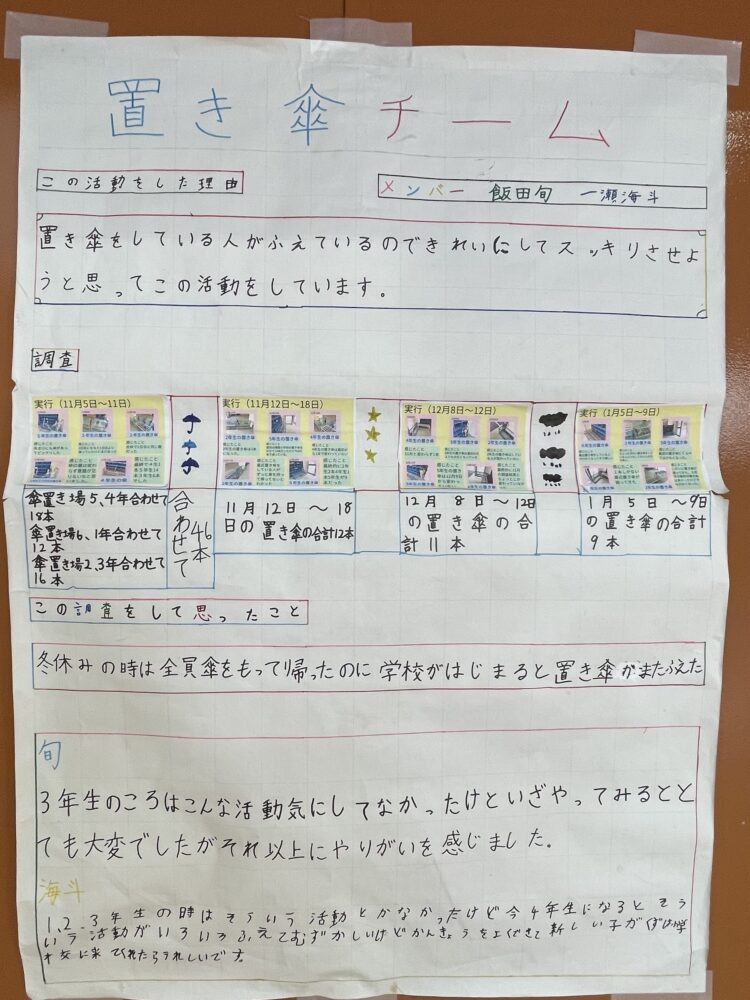 置き傘チーム
この活動をした理由
メンバー 飯田旬 一瀬海斗
置き傘をしている人がふえているのできれいにしてスッキリさせよ
うと思ってこの活動をしています。
調査
実行（11月5日～11日）
実行（11月12日～18日）
実行（12月8日～12日）
実行（1月5日～9日）
傘置き場5、4年合わせて
18本
傘置き場6、1年合わせて
12本
傘置き場2、3年合わせて
16本
合わせて
46本
11月12日～18
日の置き傘の合計12本
12月8日～12日
の置き傘の合
計11本
1月5日～9日
の置き傘の合計
9本
この調査をして思ったこと
冬休みの時は全員傘をもって帰ったのに学校がはじまると置き傘がまたふえた
旬
3年生のころはこんな活動気にしてなかったけどいざやってみるとと
ても大変でしたがそれ以上にやりがいを感じました。
海斗
1、2、3年生の時はそういう活動とかなかったけど今4年生になるとそう
いう活動がいろいろふえてむずかしいけどかんきょうをよくできて新しい子が
校に来てくれたらうれしいです。